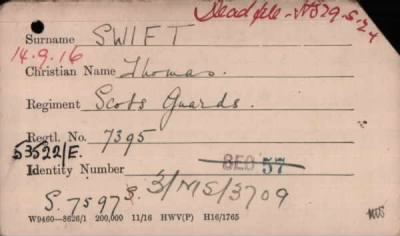 Dead file - 529.S.24
Surname SWIFT
14.9.16
Christian Name Thomas.
Regiment Scots Guards.
Regtl. No. 7395
53522/E.
Identity Number SEO 57
S. 7597 S. 3/MS/3709
W9460—8626/1 200,000 11/16 HWV(P) H16/1765